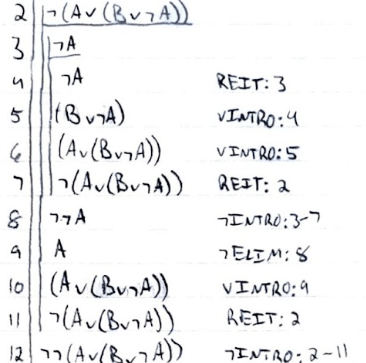 2 ¬(A∨(B∨¬A))
3 ¬A
4 ¬A REIT: 3
5 (B∨¬A) ∨INTRO: 4
6 (A∨(B∨¬A)) ∨INTRO: 5
7 ¬(A∨(B∨¬A)) REIT: 2
8 ¬¬A ¬INTRO: 3-7
9 A ¬ELIM: 8
10 (A∨(B∨¬A)) ∨INTRO: 9
11 ¬(A∨(B∨¬A)) REIT: 2
12 ¬¬(A∨(B∨¬A)) ¬INTRO: 2-11